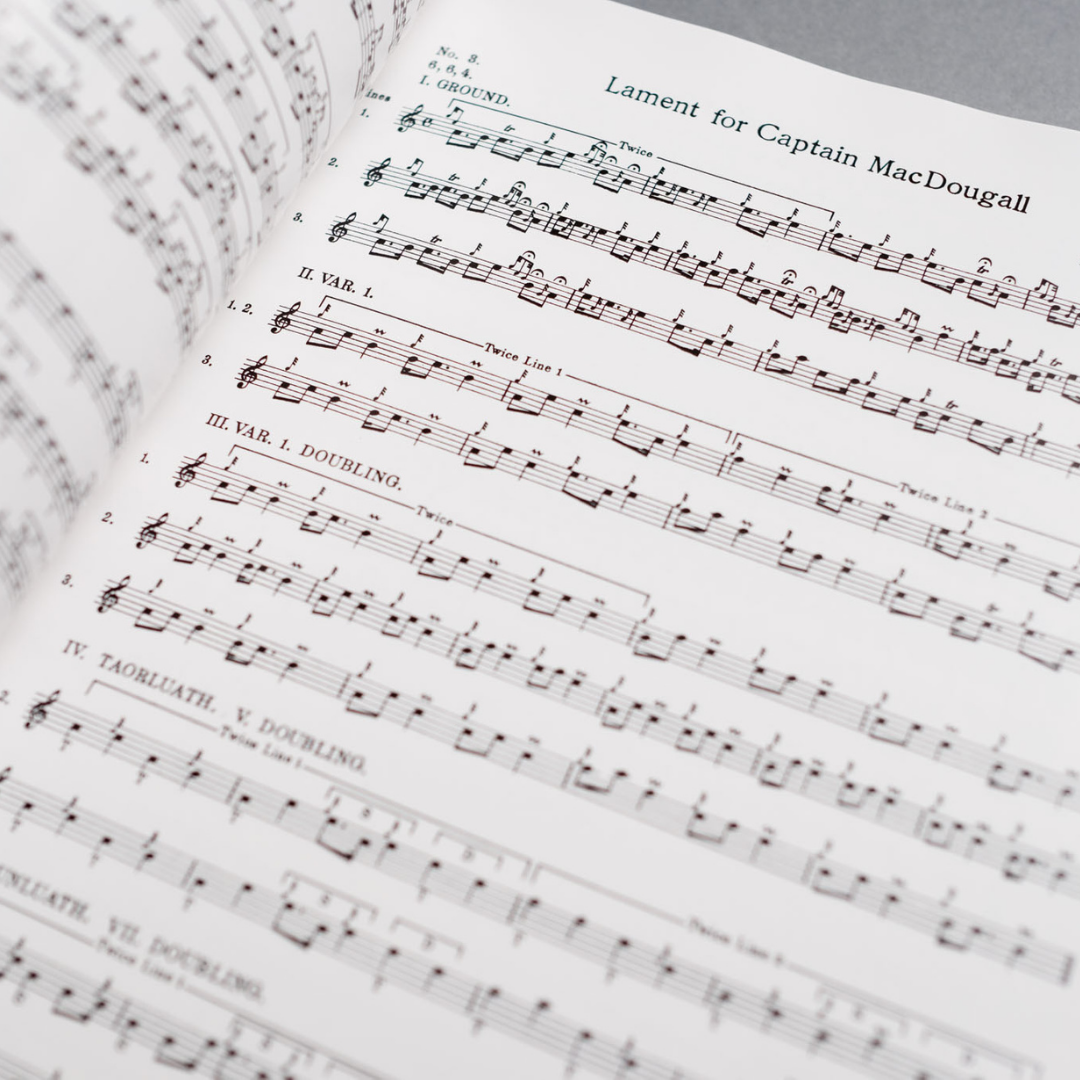 No. 3.
6, 6, 4.
Lament for Captain MacDougall
I. GROUND.
1.
Twice
2.
3.
II. VAR. 1.
1. 2.
Twice Line 1
Twice Line 2
3.
III. VAR. 1. DOUBLING.
1.
Twice
2.
3.
IV. TAORLUATH. V. DOUBLING.
2.
Twice Line 1
Twice Line 2
VII. DOUBLING.
Twice Line 1